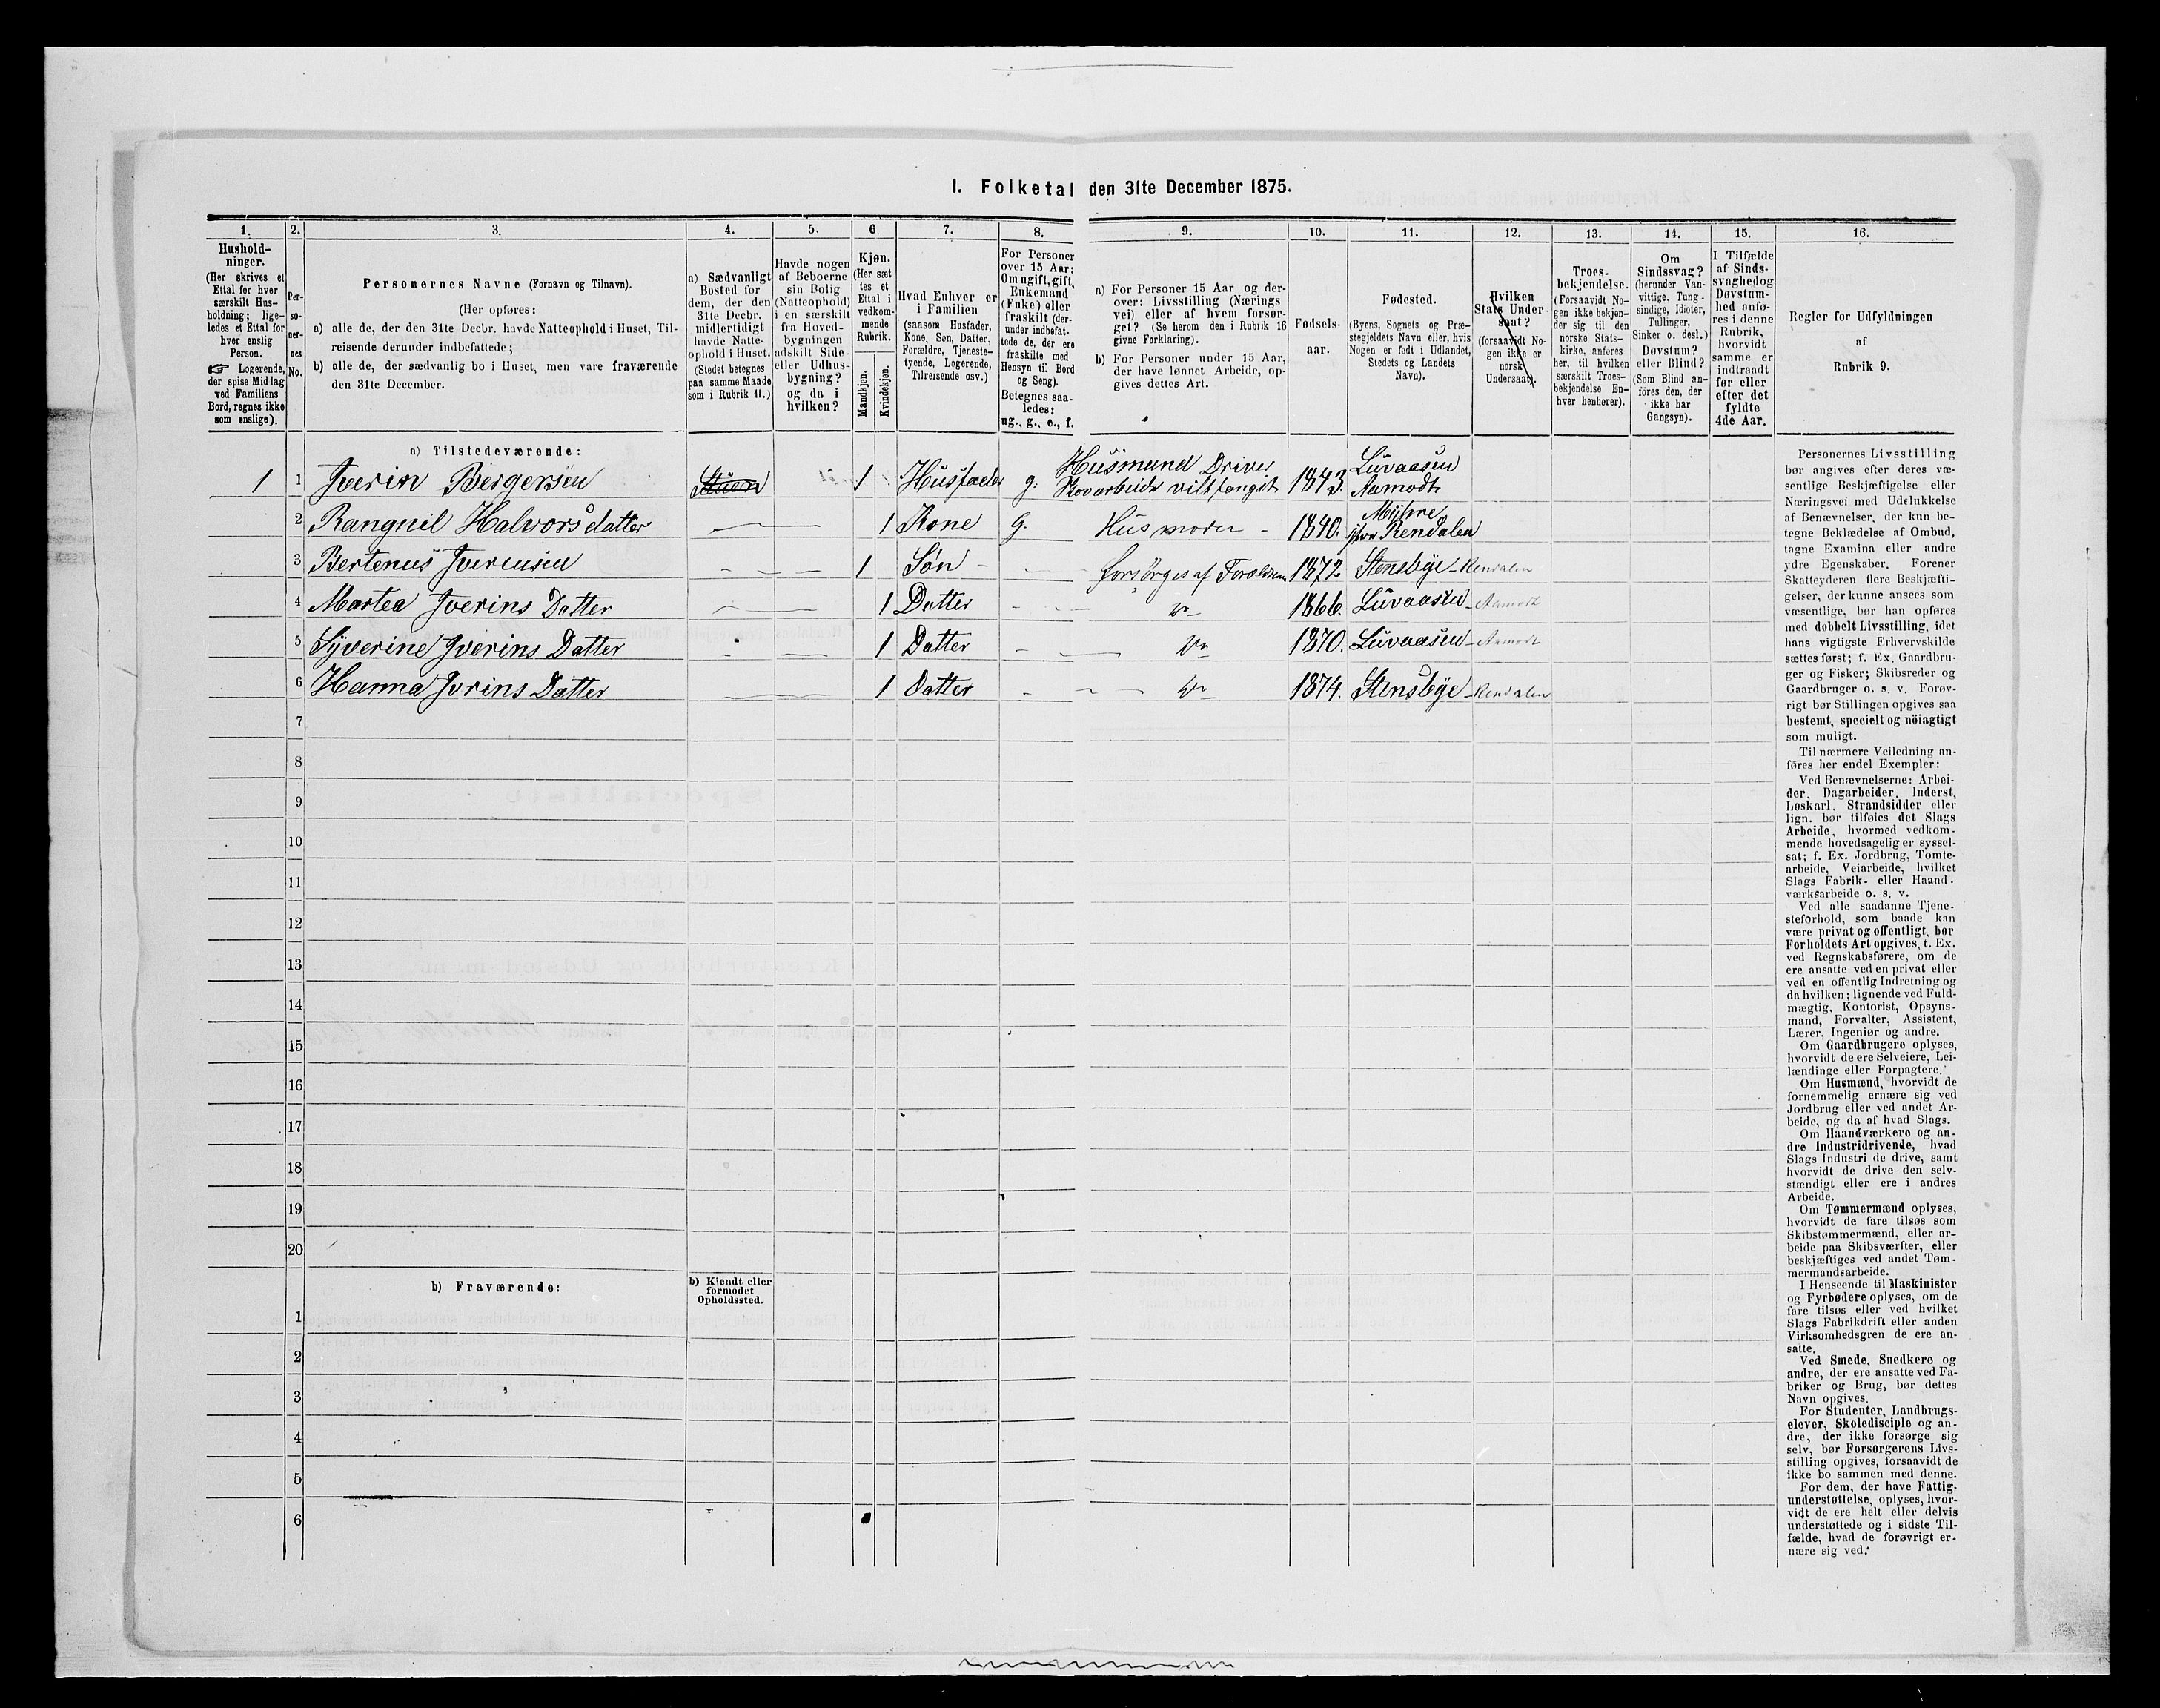 1. Folketal den 31te December 1875.
1.
2.
3.
4.
5.
6.
7.
8.
9.
10.
11.
12.
13.
14.
15.
16.
Hushold-
ninger.
(Her skrives et
Ettal for hver
særskilt Hus-
holdning; lige-
ledes et Ettal for
hver enslig
Person.
☞ Logerende,
der spise Middag
ved Familiens
Bord, regnes ikke
som enslige).
Per-
so-
ner-
nes
No.
Personernes Navne (Fornavn og Tilnavn).
(Her opføres:
a) alle de, der den 31te Decbr. havde Natteophold i Huset, Til-
reisende derunder indbefattede;
b) alle de, der sædvanlig bo i Huset, men vare fraværende
den 31te December.
a) Sædvanligt
Bosted for
dem, der den
31te Decbr.
midlertidigt
havde Natte-
ophold i Huset.
(Stedet betegnes
paa samme Maade
som i Rubrik 11.)
Havde nogen
af Beboerne
sin Bolig
(Natteophold)
i en særskilt
fra Hoved-
bygningen
adskilt Side-
eller Udhus-
bygning?
og da i
hvilken?
Kjøn.
(Her sæt
tes et
Ettal i
vedkom-
mende
Rubrik.
Mandkjøn.
Kvindekjøn.
Hvad Enhver er
i Familien
(saasom Husfader,
Kone, Søn, Datter,
Forældre, Tjeneste-
tyende, Logerende,
Tilreisende osv.)
For Personer
over 15 Aar:
Om ugift, gift,
Enkemand
(Enke) eller
fraskilt (der-
under indbefat-
tede de, der ere
fraskilte med
Hensyn til Bord
og Seng).
Betegnes saa-
ledes:
ug., g., e., f.
a) For Personer 15 Aar og der-
over: Livsstilling (Nærings
vei) eller af hvem forsør-
get? (Se herom den i Rubrik 16
givne Forklaring).
b) For Personer under 15 Aar,
der have lønnet Arbeide, op-
gives dettes Art.
Fødsels-
aar.
Fødested.
(Byens, Sognets og Præ-
stegjeldets Navn eller, hvis
Nogen er født i Udlandet,
Stedets og Landets
Navn).
Hvilken
Stats Under-
saat?
(forsaavidt No-
gen ikke er
norsk
Undersaat).
Troes-
bekjendelse.
(Forsaavidt No-
gen ikke bekjen-
der sig til den
norske Stats-
kirke, anføres
her, til hvilken
særskilt Troes-
bekjendelse En-
hver henhører).
Om
Sindssvag?
(herunder Van-
vittige, Tung-
sindige, Idioter,
Tullinger,
Sinker o. desl.)
Døvstum?
eller Blind?
(Som Blind an-
føres den, der
ikke har
Gangsyn).
I Tilfælde
af Sinds-
svaghed og
Døvstum-
hed anfø-
res i denne
Rubrik,
hvorvidt
samme er
indtraadt
før eller
efter det
fyldte
4de Aar.
Regler for Udfyldningen
af
Rubrik 9.
a) Tilstedeværende:
1 1 Iverin Bergersen Stuen 1 Husfader g. Husmand Driver Skovarbeide vilt fangst 1843. Luvaasen Aamodt
2 Rangnil Halvorsdatter 1 Kone g. Husmoder 1840. Myhre Rendalen
3 Bertenus Iverinsen 1 Søn forsörges af Forældrene 1872 Stensbye - Rendalen
4 Martea Iverins Datter 1 Datter 1866. Luvaasen - Aamodt
5 Syverine Iverins Datter 1 Datter 1870. Luvaasen - Aamodt
6 Hanna Ivrins Datter 1 Datter 1874. Stensbye - Rendalen
7
8
9
10
11
12
13
14
15
16
17
18
19
20
b) Fraværende:
b) Kjendt eller
formodet
Opholdssted.
1
2
3
4
5
6
Personernes Livsstilling
bør angives efter deres væ-
sentlige Beskjæftigelse eller
Næringsvei med Udelukkelse
af Benævnelser, der kun be-
tegne Beklædelse af Ombud,
tagne Examina eller andre
ydre Egenskaber. Forener
Skatteyderen flere Beskjæfti-
gelser, der kunne ansees som
væsentlige, bør han opføres
med dobbelt Livsstilling, idet
hans vigtigste Erhvervskilde
sættes først; f. Ex. Gaardbru-
ger og Fisker; Skibsreder og
Gaardbruger o. s. v. Forøv-
rigt bør Stillingen opgives saa
bestemt, specielt og nöiagtigt
som muligt.
Til nærmere Veiledning an-
føres her endel Exempler:
Ved Benævnelserne: Arbei-
der, Dagarbeider, Inderst,
Løskarl, Strandsidder eller
lign. bør tilføies det Slags
Arbeide, hvormed vedkom-
mende hovedsagelig er syssel-
sat; f. Ex. Jordbrug, Tomte-
arbeide, Veiarbeide, hvilket
Slags Fabrik- eller Haand-
værksarbeide o. s. v.
Ved alle saadanne Tjene-
steforhold, som baade kan
være privat og offentligt, bør
Forholdets Art opgives, t. Ex.
ved Regnskabsførere, om de
ere ansatte ved en privat eller
ved en offentlig Indretning og
da hvilken; lignende ved Fuld-
mægtig, Kontorist, Opsyns-
mand, Forvalter, Assistent,
Lærer, Ingeniør og andre.
Om Gaardbrugere oplyses,
hvorvidt de ere Selveiere, Lei-
lændinge eller Forpagtere.
Om Husmænd, hvorvidt de
fornemmelig ernære sig ved
Jordbrug eller ved andet Ar-
beide, og da af hvad Slags.
Om Haandværkere og an-
dre Industridrivende, hvad
Slags Industri de drive, samt
hvorvidt de drive den selv-
stændigt eller ere i andres
Arbeide.
Om Tømmermænd oplyses,
hvorvidt de fare tilsøs som
Skibstømmermænd, eller ar-
beide paa Skibsværfter, eller
beskjæftiges ved andet Tøm-
mermandsarbeide.
I Henseende til Maskinister
og Fyrbødere oplyses, om de
fare tilsøs eller ved hvilket
Slags Fabrikdrift eller anden
Virksomhedsgren de ere an-
satte.
Ved Smede, Snedkere og
andre, der ere ansatte ved Fa-
briker og Brug, bør dettes
Navn opgives.
For Studenter, Landbrugs-
elever, Skoledisciple og an-
dre, der ikke forsørge sig
selv, bør Forsørgerens Livs-
stilling opgives, forsaavidt de
ikke bo sammen med denne.
For dem, der have Fattig-
understøttelse, oplyses, hvor-
vidt de ere helt eller delvis
understøttede og i sidste Til-
fælde, hvad de forøvrigt er-
nære sig ved.